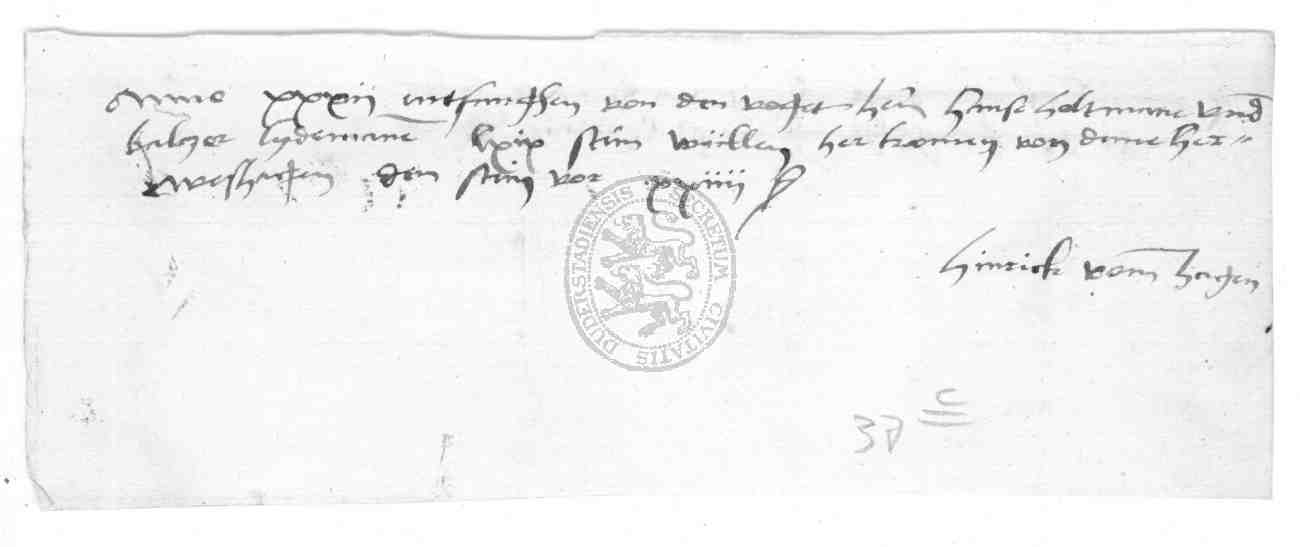 Anno xxxii entfanghen von den voget hern Hanse Holtmane vnd
baltzer lydemane lxix stein wullen her komen von deme her-
Weshagen den stein vor xxiiii
Hinrick vom Hagen
SECRETUM CIVITATIS DUDERSTADIENSIS
37 c